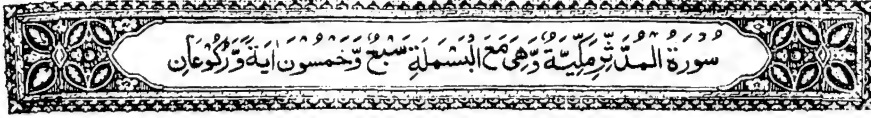 سُوْرَةُ الْمُدَّثِّرِ مَكِّيَّةٌ وَّهِیَ مَعَ الْبَسْمَلَةِ سَبْعٌ وَّخَمْسُوْنَ اٰيَةً وَّرُكُوْعَانِ